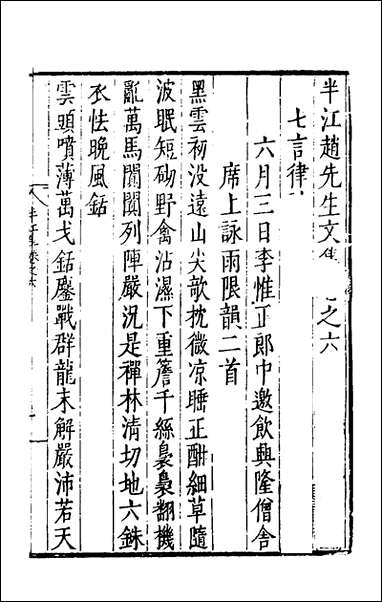 半江趙先生文集 之六
七言律
六月三日李惟正郎中邀飲興隆僧舍
席上詠雨限韻二首
黑雲初没遠山尖欹枕微凉睡正酣細草隨
波眠短砌野禽沾濕下重簷千絲裊裊翻機
亂萬馬闐闐列陣嚴況是禪林清切地六銖
衣怯晚風銛
雲頭噴薄萬戈銛鏖戰群龍未解嚴沛若天